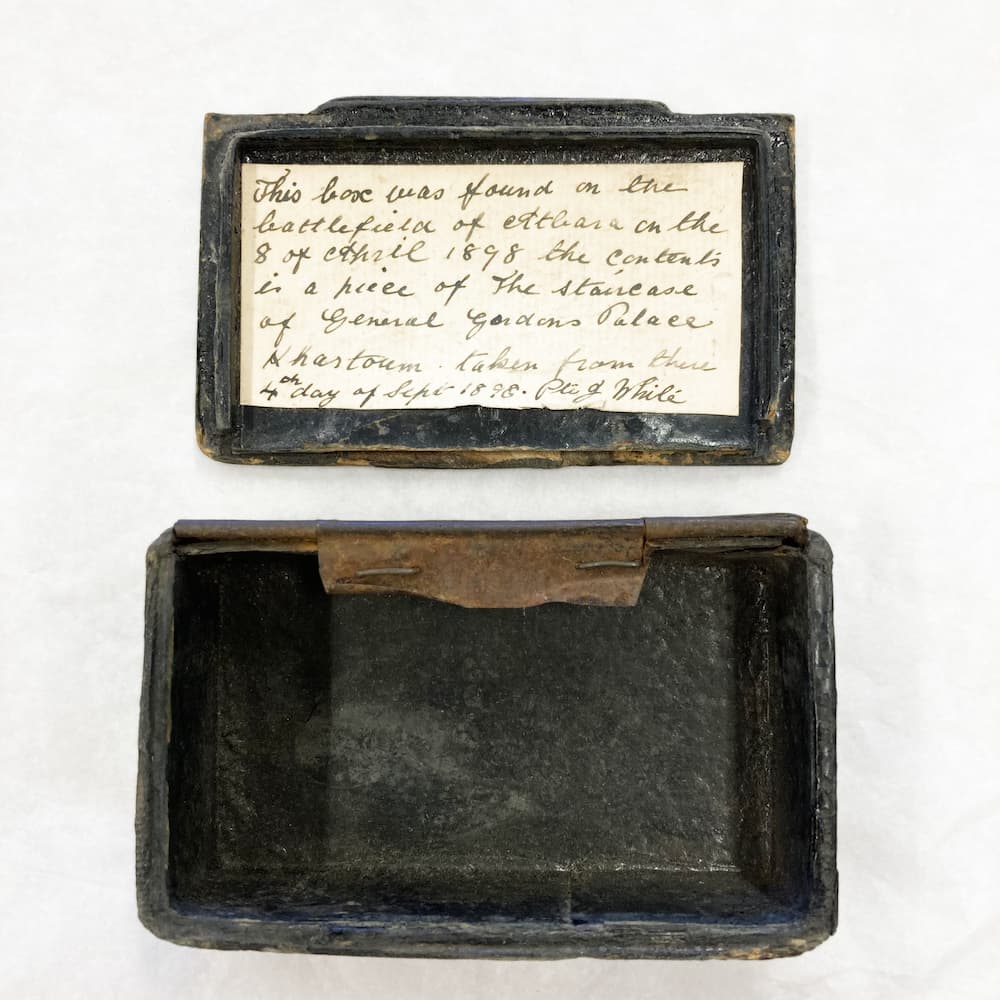 This box was found on the
battlefield of Atbara on the
8 of April 1898 the contents
is a piece of The staircase
of General Gordons Palace
Khartoum. taken from there
4th day of Sept 1898. Pte J White